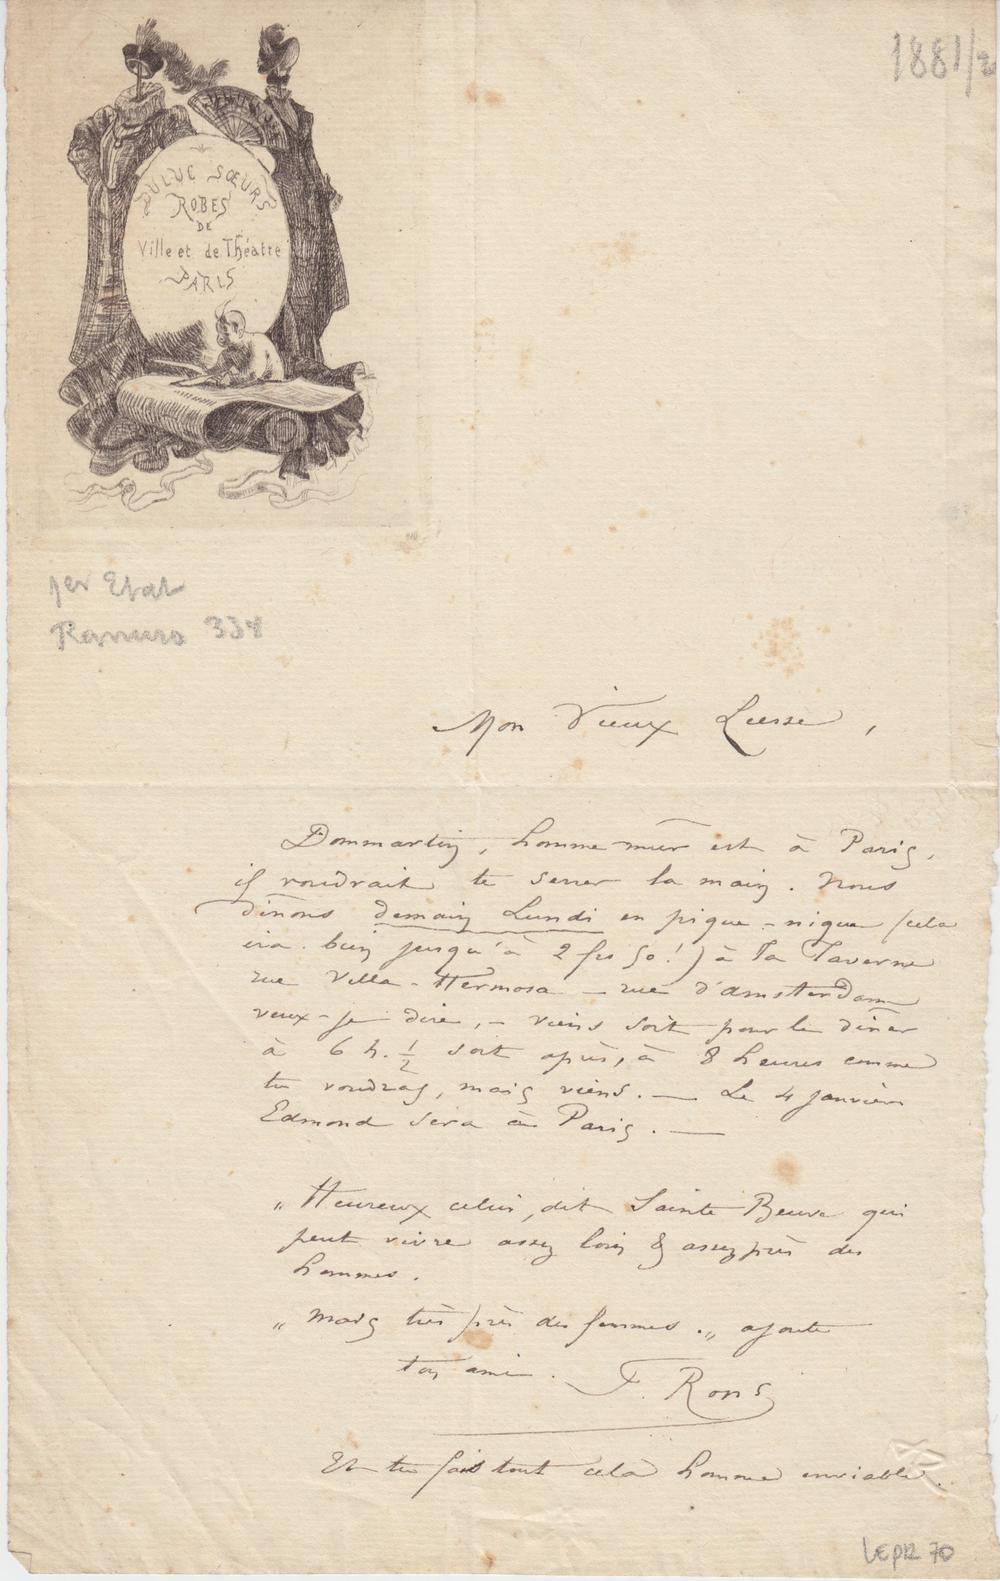 1881/2
DULUC SŒURS
ROBES
DE
Ville et de Théatre
PARIS
1er Etat
Ramiro 334
Mon Vieux Liesse,
Dommartin, homme mûr est à Paris,
il voudrait te serrer la main. Nous
dînons demain Lundi en pique-nique (cela
ira bien jusqu'à 2 frs 50!) à la Taverne
rue Villa-Hermosa - rue d'amsterdam
veux-je dire, - viens soit pour le dîner
à 6 h. 1/2 soit après, à 8 heures comme
tu voudras, mais viens. — Le 4 janvier
Edmond sera à Paris. —
„ Heureux celui, dit Sainte Beuve qui
peut vivre assez loin & assez près des
hommes.
„ mais très près des femmes. „ ajoute
ton ami. F. Rops
Et tu fais tout cela homme enviable.
LEpR 70